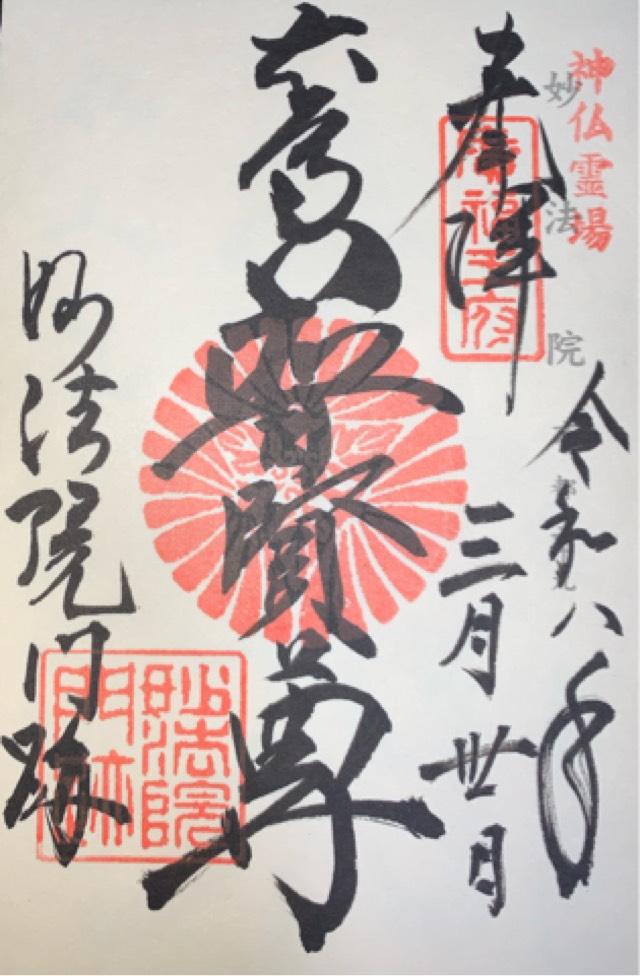 神仏霊場
妙法院
奉拝
令和八年
三月廿日
大聖普賢尊
妙法院門跡
妙法院
門跡